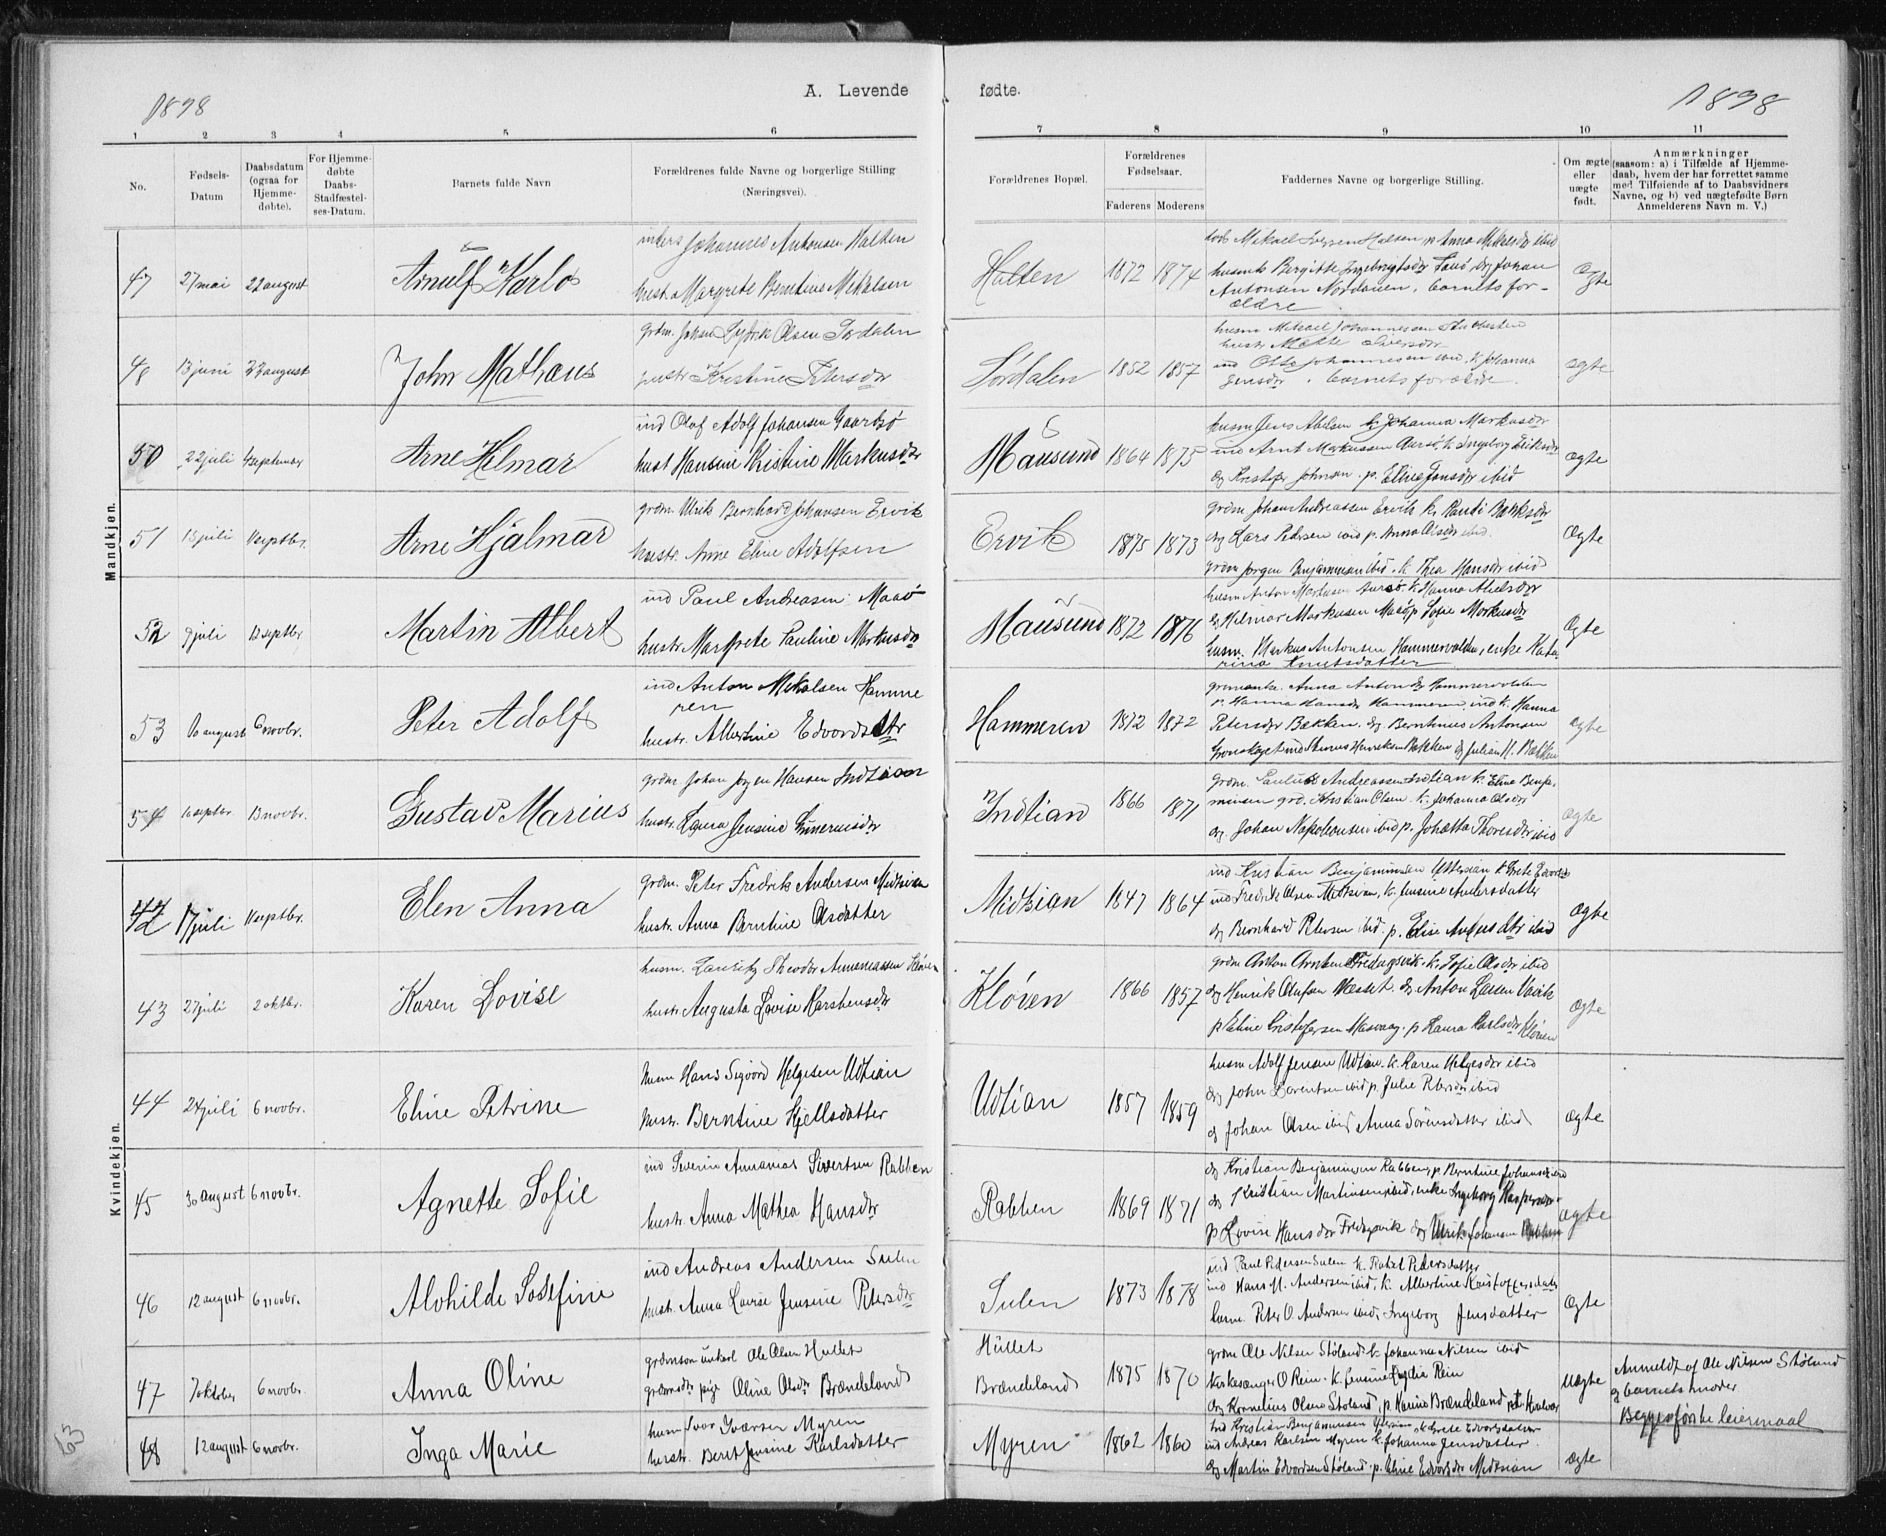 1898
A. Levende fødte.
1898
1 2 3 4 5 6 7 8 9 10 11
No.
Fødsels-Datum
Daabsdatum (ogsaa for Hjemme-døbte).
For Hjemme-døbte Daabs-Stadfæstel-ses-Datum.
Barnets fulde Navn
Forældrenes fulde Navne og borgerlige Stilling (Næringsvei).
Forældrenes Bopæl.
Forældrenes Fødselsaar.
Faderens Moderens
Faddernes Navne og borgerlige Stilling.
Om ægte eller uægte født.
Anmærkninger
(saasom: a) i Tilfælde af Hjemme-daab, hvem der har forrettet samme med Tilføiende af to Daabsvidners Navne, og b) ved uægtefødte Børn Anmelderens Navn m. V.)
Mandkjøn.
47 27 mai 22 august Arnulf Karlo
Johannes Antonsen Halten
hust. Margrete Berntine Mikalsen
Halten 1872 1874
husmk Bergitte Ingebrigtsdr
Antonsen Nordauen, barnets for-
ældre
Ægte
48 13 juni John Mathæus
grdm. Johan Fredrik Olsen Sørdalen
hustr. Kristine Petersdr
Sørdalen 1852 1857
husm Mikael Johannessen
hustr Mette Iversdr
ind Otto Johannesen ibid. k. Johanna
Jensdr. barnets forældre.
Ægte
50 22 juli 4 september Arne Helmar
ind Olaf Adolf Johansen Gaarsø
hust Hansine Kristine Markusdr
Mausund 1864 1875
husm Jens Abelsen k. Johanna Markusdr
ind Arnt Markussen k. Ingeborg Eriksdr
og Kristofer Johnsen. p. Eline Jensdr ibid
Ægte
51 15 juli septbr. Arne Hjalmar
grdm Ulrik Bernhard Johansen Ervik
hustr. Anne Eline Adolfsen
Ervik 1875 1873
grdm Johan Andreassen Ervik k.
og Lars Pedersen ibid p. Anna Olsdr ibid.
grdm Jørgen Benjaminsen ibid. k. Thea Hansdr ibid
Ægte
52 9 juli septbr Martin Albert
ind Paul Andreasen Maaø
hustr. Margrete Pauline Markusdr
Mausund 1872 1876
husm Anton Markusen k. Hanna Abelsdr
og Hilmar Markusen p. Sofie Markusdr
husm. Markus Antonsen Hammervolden, enke Kata-
rina Knutsdatter
Ægte
53 10 august 6 novbr. Peter Adolf
ind Anton Mikalsen Hamme
ren
hustr. Albertine Edvardsdtr
Hammeren 1872 1872
grdmenke. Anna Antondr Hammervolden
p. Hanna Hansdr Hammeren, ind k. Hanna
Petersdr Bakken, og Berntinus Antonsen
Ægte
54 septbr 13 novbr. Gustav Marius
grdm Johan Jørgen Hansen Indtian
hustr. Laura Jensine
Indtian 1866 1871
grdm. Paulus Andreassen Indtian k. Eline Benja-
minsen grd. Kristian Olsen k. Johanna Olsdr
og Johan Napoleonsen ibid p. Johætta Thoresdr ibid
Ægte
Kvindekjøn.
42 17 juli septbr. Elen Anna
grdm. Peter Fredrik Andersen Midtsian
hustr. Anna Berntine Olsdatter
Midtsian 1847 1864
ind Kristian Benjaminsen k. Grete Edvardsdr
ind Fredrik Olsen Midtsian, k. Jensine Andersdatter
og Bernhard Petersen ibid. p. Elise ibid
Ægte
43 27 juli 2 oktbr. Karen Lovise
husm. Lauritz Theodor Kløven
hustr Augusta Lovise Karstensdr
Kløven 1866 1857
grdm Anton Arntsen Fredagsvik. k. Sofie Olsdr ibid
og Henrik Olufsen Næsset. og Anton Larsen
p Eline Kristofersen p Laura Karlsdr Kløven
Ægte
44 24 juli 6 novbr. Eline Petrine
Husm Hans Sigvard Helgesen Udtian
Hustr. Berntine Kjellsdatter
Udtian 1857 1859
husm Adolf Jensen Udtian. k. Karen Helgesdr ibid
og John Lorentsen ibid p. Julie Petersdr ibid
og Johan Olsen ibid Anna Sørensdatter ibid
Ægte
45 30 august 6 novbr. Agnette Sofie
ind Severin Annanias Sivertsen Rabben
hustr. Anna Mathea Hansdr
Rabben 1869 1871
og Kristian Benjaminsen Rabben, p. Berntine Johansdr ibid
og Kristian Martinsen ibid, enke Ingeborg Kaspersdr
p Lovise Hansdr Fredagsvik og Ulrik Johansen Rabben
Ægte
46 12 august 6 novbr. Alvhilde Josefine
ind Andreas Andersen Sulen
hustr. Anna Lovise Jensine Petersdr
Sulen 1873 1878
ind Paul Pedersen Sulen k. Rakel Pedersdatter
ind Hans M. Andersen ibid, k. Albertine Kristoffersdatter
Peter O. Andersen ibid, Ingeborg Jensdatter
Ægte
47 7 oktober 6 novbr. Anna Oline
grdmson ungkarl Ole Olsen Hullet
grdmsdr pige Oline Olsdr Brændeland
Hullet
Brændeland 1875 1870
grdm Ole Nilsen Støland k. Johanna Nilsen ibid
Kirkesanger O Rein. k. Jensine Lydia Rein
og Kornelius Olsen Støland, p. Karine Brændeland
Uægte
Anmeldt af Ole Nilsen Støland
og barnets moder
Begges første leiermaal
48 12 august 6 novbr. Inga Marie
husm Ivar Ivarsen Myren
hustr. Beret Jensine Karlsdatter
Myren 1862 1860
ind Kristian Benjaminsen k. Grete Edvardsdatter
ind Andreas Karlsen Myren k. Johanna Jensdatter
og Martin Edvardsen Støland. p. Eline Edvardsdr Midtsian
Ægte
63